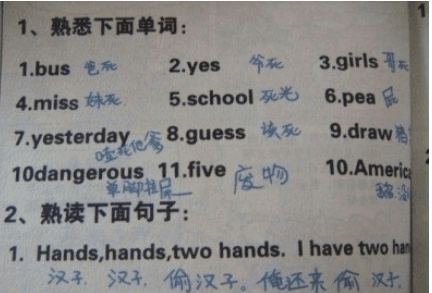 1、熟悉下面单词：
1.bus 爸死 2.yes 爷死 3.girls 哥死
4.miss 妹死 5.school 死光 6.pea 屁
7.yesterday 8.guess 该死 9.draw
10dangerous 单脚拉屎 11.five 废物 10.America
2、熟读下面句子：
1. Hands,hands,two hands. I have two han
汉子，汉子，偷汉子。俺还来偷汉子